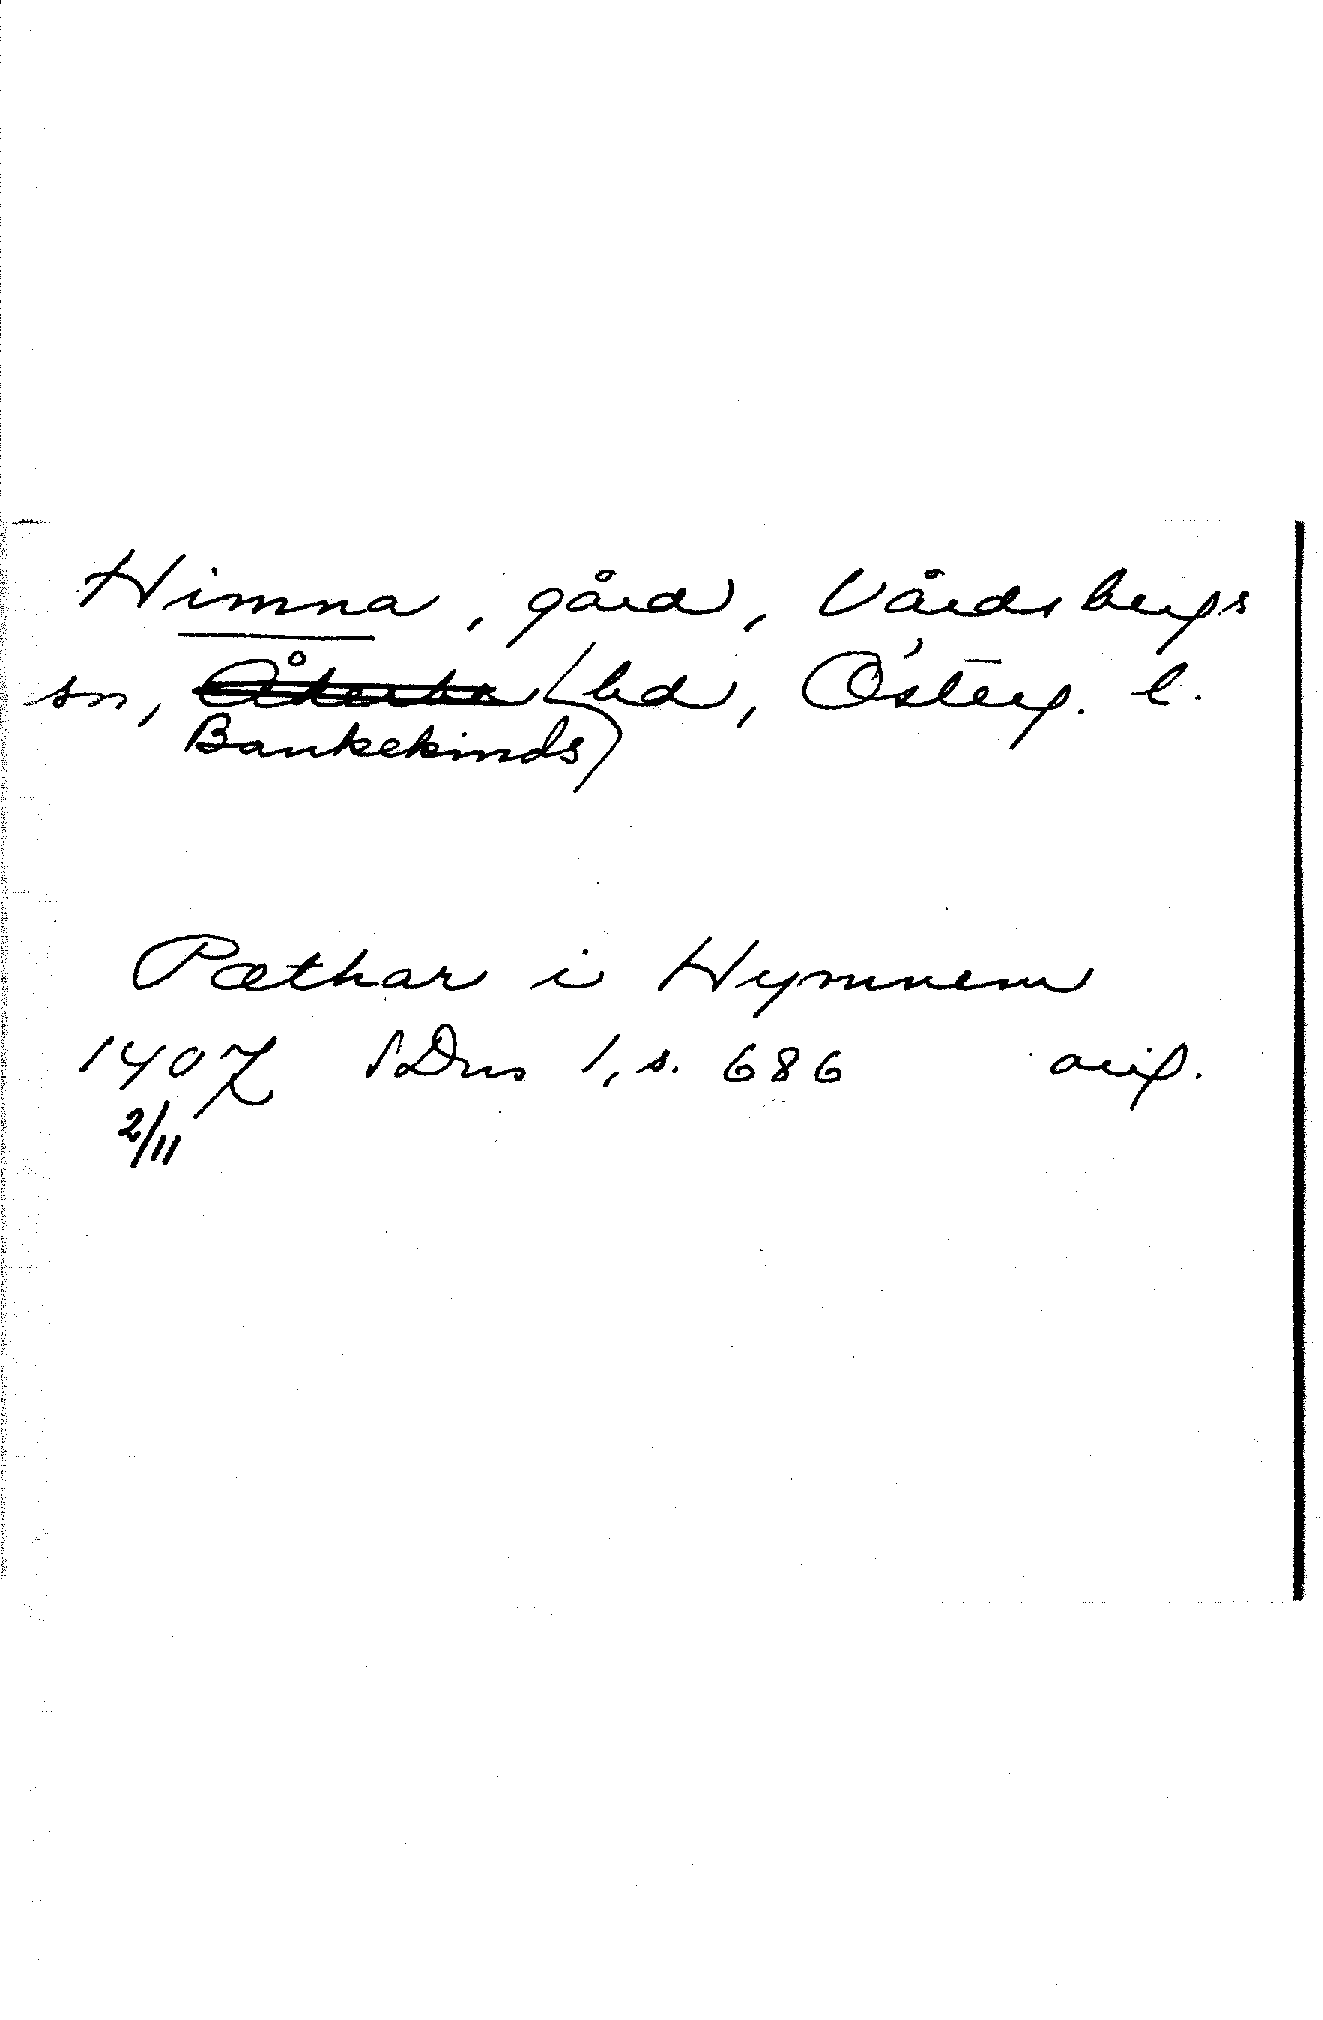 Himna, gård, Vårdsbergs
sn, Åkerbo hd, Österg. l.
Bankekinds
Pæthar i Hymnem
1407 SDns 1, s. 686 orig.
2/11